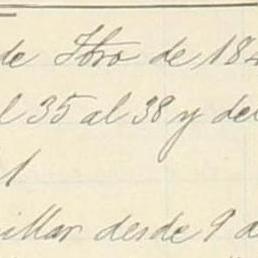 de Fbro de 184
l 35 al 38 y del
1
illar desde 9 d